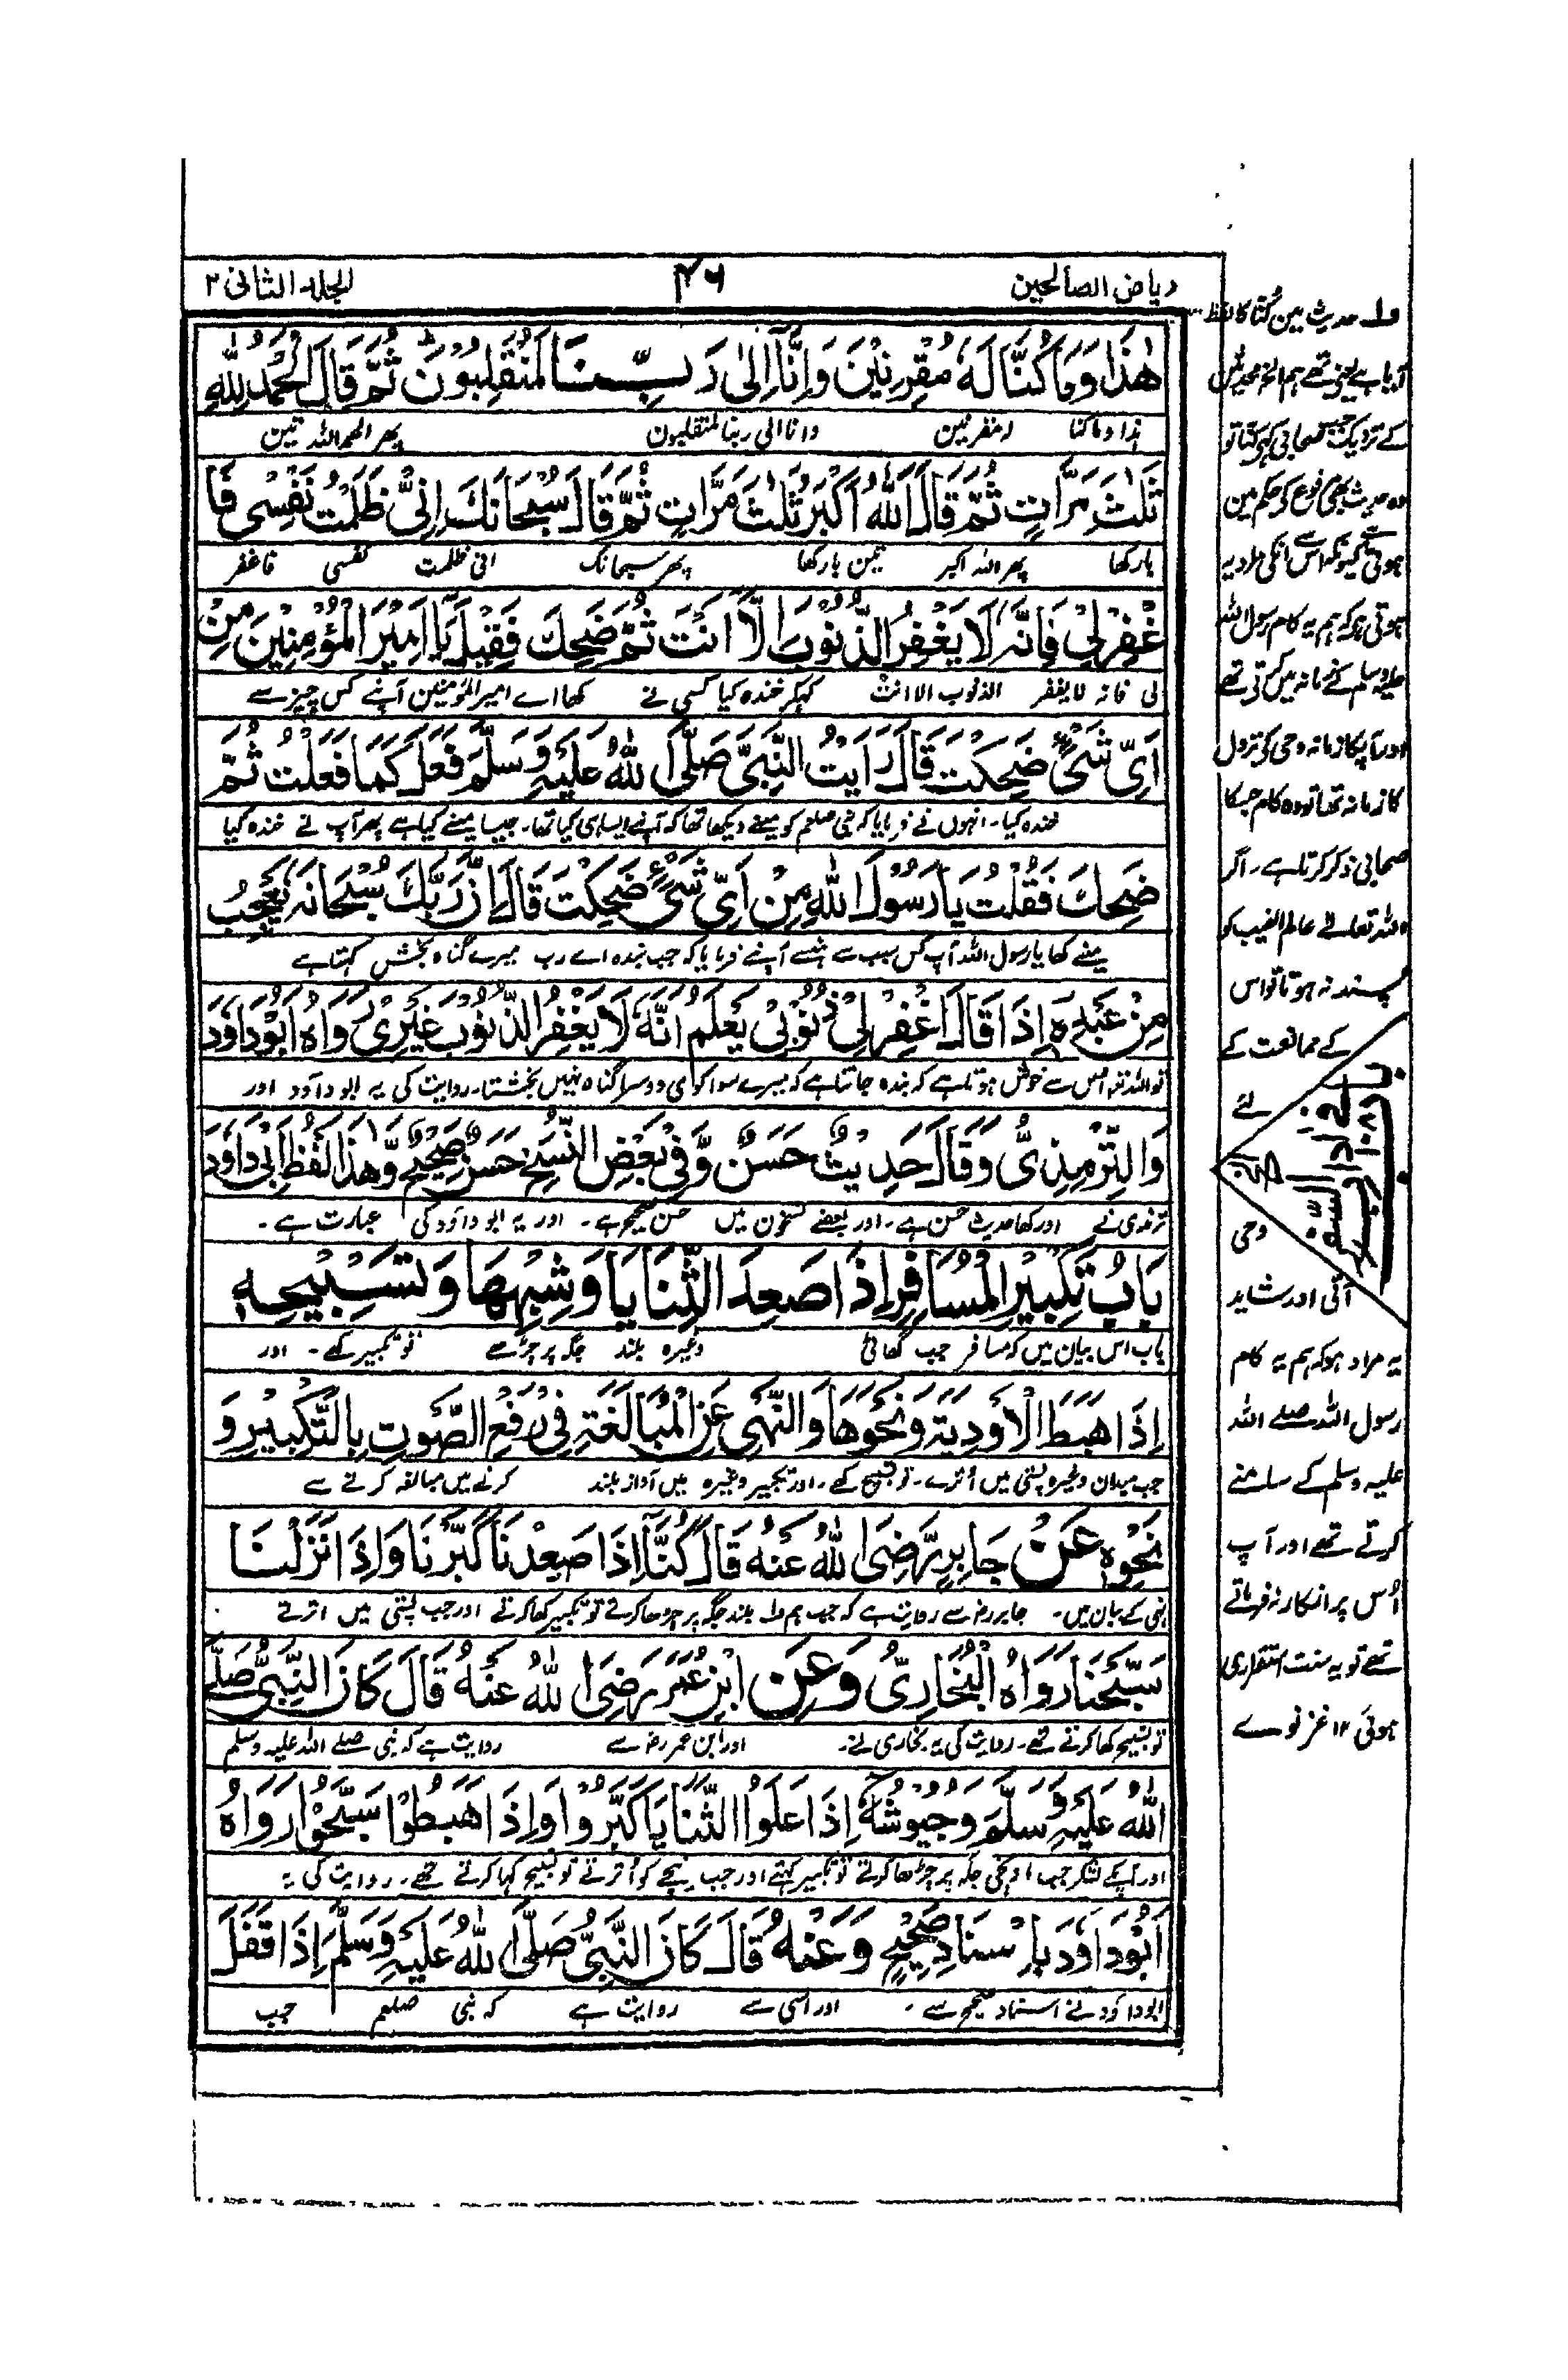 رياض الصالحين
٤٦
الجلد الثانی ٢
هٰذَا وَمَا كُنَّا لَهٗ مُقْرِنِيْنَ وَاِنَّا اِلٰى رَبِّنَا لَمُنْقَلِبُوْنَ ثُمَّ قَالَ اَلْحَمْدُ لِلّٰهِ
ہذا وماکنا لہ مقرنین وانا الی ربنا لمنقلبون پھر الحمد للہ تین
ثَلٰثَ مَرَّاتٍ ثُمَّ قَالَ اَللّٰهُ اَكْبَرُ ثَلٰثَ مَرَّاتٍ ثُمَّ قَالَ سُبْحَانَكَ اِنِّىْ ظَلَمْتُ نَفْسِىْ فَا
بار کھا پھر اللہ اکبر تین بار کھا پھر سبحانک انی ظلمت نفسی فاغفر
غْفِرْلِىْ فَاِنَّهٗ لَا يَغْفِرُ الذُّنُوْبَ اِلَّا اَنْتَ ثُمَّ ضَحِكَ فَقِيْلَ يَا اَمِيْرَ الْمُؤْمِنِيْنَ مِنْ
لی فانہ لا یغفر الذنوب الا انت کہکر خندہ کیا کسی نے کھا اے امیر المؤمنین آپنے کس چیز سے
اَىِّ شَىْءٍ ضَحِكْتَ قَالَ رَاَيْتُ النَّبِىَّ صَلَّى اللّٰهُ عَلَيْهِ وَسَلَّمَ فَعَلَ كَمَا فَعَلْتُ ثُمَّ
خندہ کیا۔ انہوں نے فرمایا کہ نبی صلعم کو مینے دیکھا تھا کہ آپنے ایسا ہی کیا تھا۔ جیسا مینے کیا ہے پھر آپ نے خندہ کیا
ضَحِكَ فَقُلْتُ يَا رَسُوْلَ اللّٰهِ مِنْ اَىِّ شَىْءٍ ضَحِكْتَ قَالَ اِنَّ رَبَّكَ سُبْحَانَهٗ يَعْجَبُ
مینے کھا یا رسول اللہ آپ کس سبب سے ہنسے آپنے فرمایا کہ جب بندہ اے رب میرے گناہ بخش کہتا ہے
مِنْ عَبْدِهٖ اِذَا قَالَ اغْفِرْ لِىْ ذُنُوْبِىْ يَعْلَمُ اَنَّهٗ لَا يَغْفِرُ الذُّنُوْبَ غَيْرِىْ رَوَاهُ اَبُوْدَاوٗدَ
تو اللہ تعہ اس سے خوش ہوتا ہے کہ بندہ جانتا ہے کہ میرے سوا کوی دوسرا گناہ نہیں بخشتا۔ روایت کی یہ ابو داؤد اور
وَالتِّرْمِذِىُّ وَقَالَ حَدِيْثٌ حَسَنٌ وَّفِىْ بَعْضِ النُّسَخِ حَسَنٌ صَحِيْحٌ وَّهٰذَا لَفْظُ اَبِىْ دَاوٗدَ
ترمذی نے اور کھا حدیث حسن ہے۔ اور بعضے نسخون میں حسن صحیح ہے۔ اور یہ ابو داؤد کی عبارت ہے۔
بَابُ تَكْبِيْرِ الْمُسَافِرِ اِذَا صَعِدَ الثَّنَايَا وَشِبْهَهَا وَتَسْبِيْحِهٖ
باب اس بیان میں کہ مسافر جب گھاٹی وغیرہ بلند جگہ پر چڑھے تو تکبیر کہے۔ اور
اِذَا هَبَطَ الْاَوْدِيَةَ وَنَحْوَهَا وَالنَّهْىِ عَنِ الْمُبَالَغَةِ فِىْ رَفْعِ الصَّوْتِ بِالتَّكْبِيْرِ وَ
جب میدان وغیرہ پستی میں اُترے۔ تو تسبیح کہے۔ اور تکبیر وغیرہ میں آواز بلند کرنے میں مبالغہ کرنے سے
نَحْوِهٖ عَنْ جَابِرٍ رَّضِىَ اللّٰهُ عَنْهُ قَالَ كُنَّا اِذَا صَعِدْنَا كَبَّرْنَا وَاِذَا نَزَلْنَا
نہی کے بیان میں۔ جابر رضہ سے روایت ہے کہ جب ہم ولہ بلند جگہ پر چڑھا کرتے تو تکبیر کھا کرتے اور جب پستی میں اترتے
سَبَّحْنَا رَوَاهُ الْبُخَارِىُّ وَعَنِ ابْنِ عُمَرَ رَضِىَ اللّٰهُ عَنْهُ قَالَ كَانَ النَّبِىُّ صَلَّى
تو تسبیح کھا کرتے تھے۔ روایت کی یہ بخاری نے۔ اور ابن عمر رضہ سے روایت ہے کہ نبی صلے اللہ علیہ وسلم
اللّٰهُ عَلَيْهِ وَسَلَّمَ وَجُيُوْشُهٗ اِذَا عَلَوُا الثَّنَايَا كَبَّرُوْا وَاِذَا هَبَطُوْا سَبَّحُوْا رَوَاهُ
اور آپکے لشکر جب اونچی جگہ پر چڑھا کرتے تو تکبیر کہتے اور جب نیچے کو اُترتے تو تسبیح کہا کرتے تھے۔ روایت کی یہ
اَبُوْدَاوٗدَ بِاِسْنَادٍ صَحِيْحٍ وَعَنْهُ قَالَ كَانَ النَّبِىُّ صَلَّى اللّٰهُ عَلَيْهِ وَسَلَّمَ اِذَا قَفَلَ
ابو داؤد نے اسناد صحیح سے۔ اور اسی سے روایت ہے کہ نبی صلعم جب
ولہ حدیث مین کُنّا کا لفظ
آیا ہے یعنی تھے ہم الخ محدثین
کے نزدیک جب صحابی کہے کنا تو
وہ حدیث بھی مرفوع کے حکم مین
ہوتی ہے کیونکہ اس سے انکی مراد یہ
ہوتی ہے کہ ہم یہ کام رسول اللہ
علیہ وسلم کے زمانہ میں کرتے تھے
اور آپکا زمانہ وحی کے نزول
کا زمانہ تھا تو وہ کام جسکا
صحابی ذکر کرتا ہے۔ اگر
اللہ تعالے عالم الغیب کو
پسند نہ ہوتا تو اس
کے ممانعت کے
لئے
وحی
آتی اور شاید
یہ مراد ہو کہ ہم یہ کام
رسول اللہ صلے اللہ
علیہ وسلم کے سامنے
کرتے تھے اور آپ
اُس پر انکار نہ فرماتے
تھے تو یہ سنت استقراری
ہوئی ١٢ غزنوے